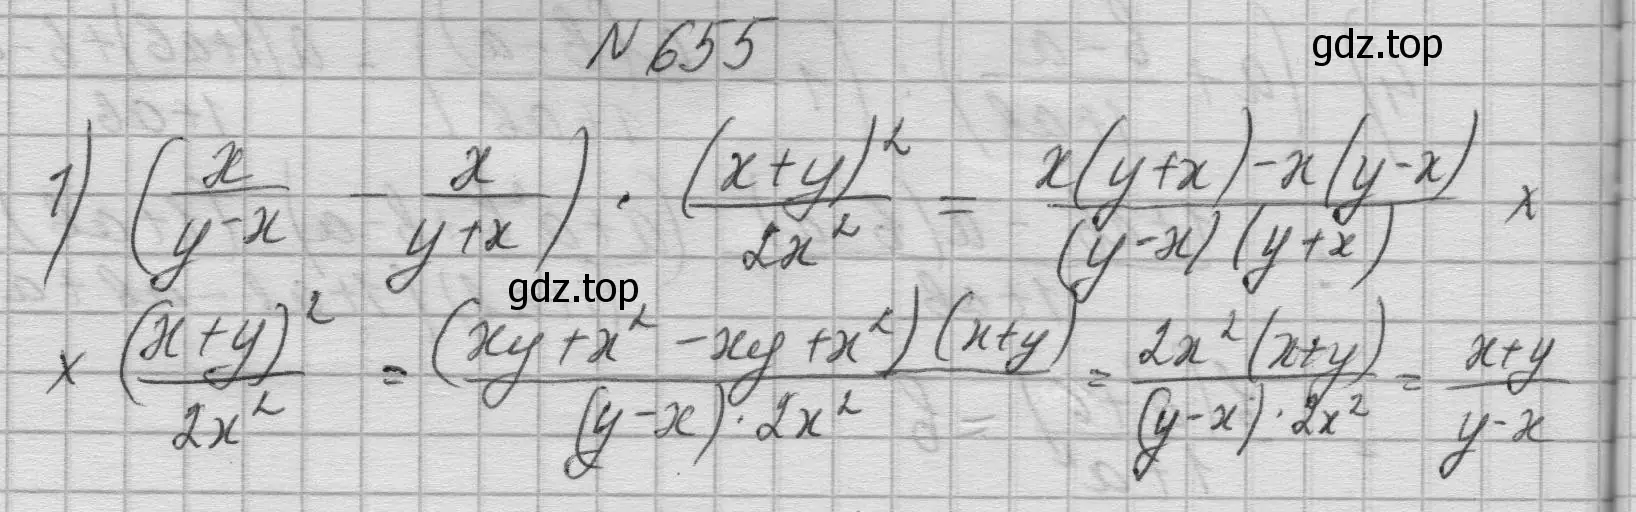 N 655
gdz.top
1) (x/(y-x) - x/(y+x)) · (x+y)²/2x² = (x(y+x)-x(y-x))/((y-x)(y+x)) x
gdz.top
x (x+y)²/2x² = ((xy+x²-xy+x²)(x+y))/((y-x)·2x²) = (2x²(x+y))/((y-x)·2x²) = (x+y)/(y-x)